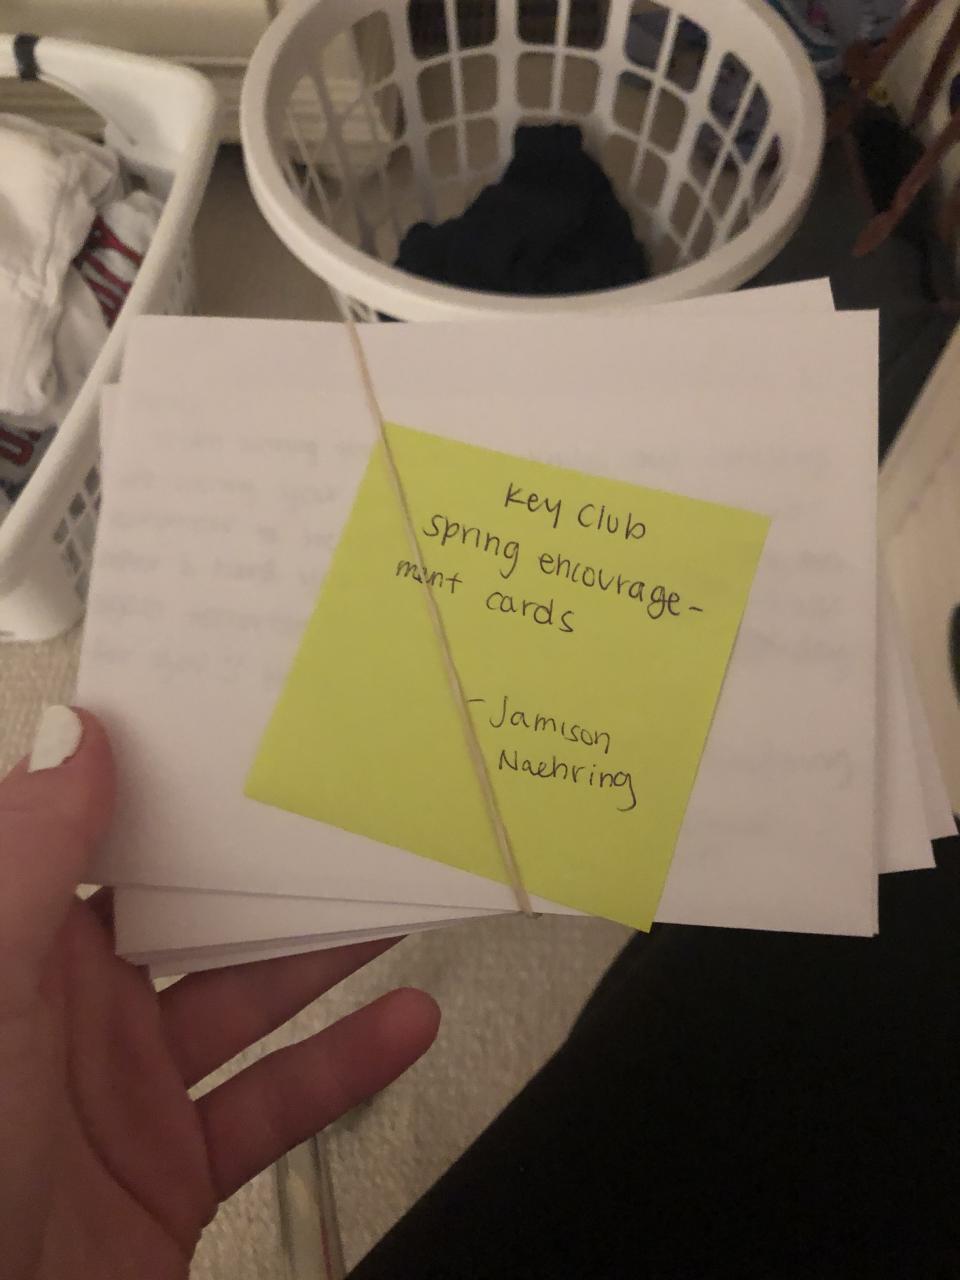 Key Club
spring encourage-
ment cards
- Jamison
Naehring